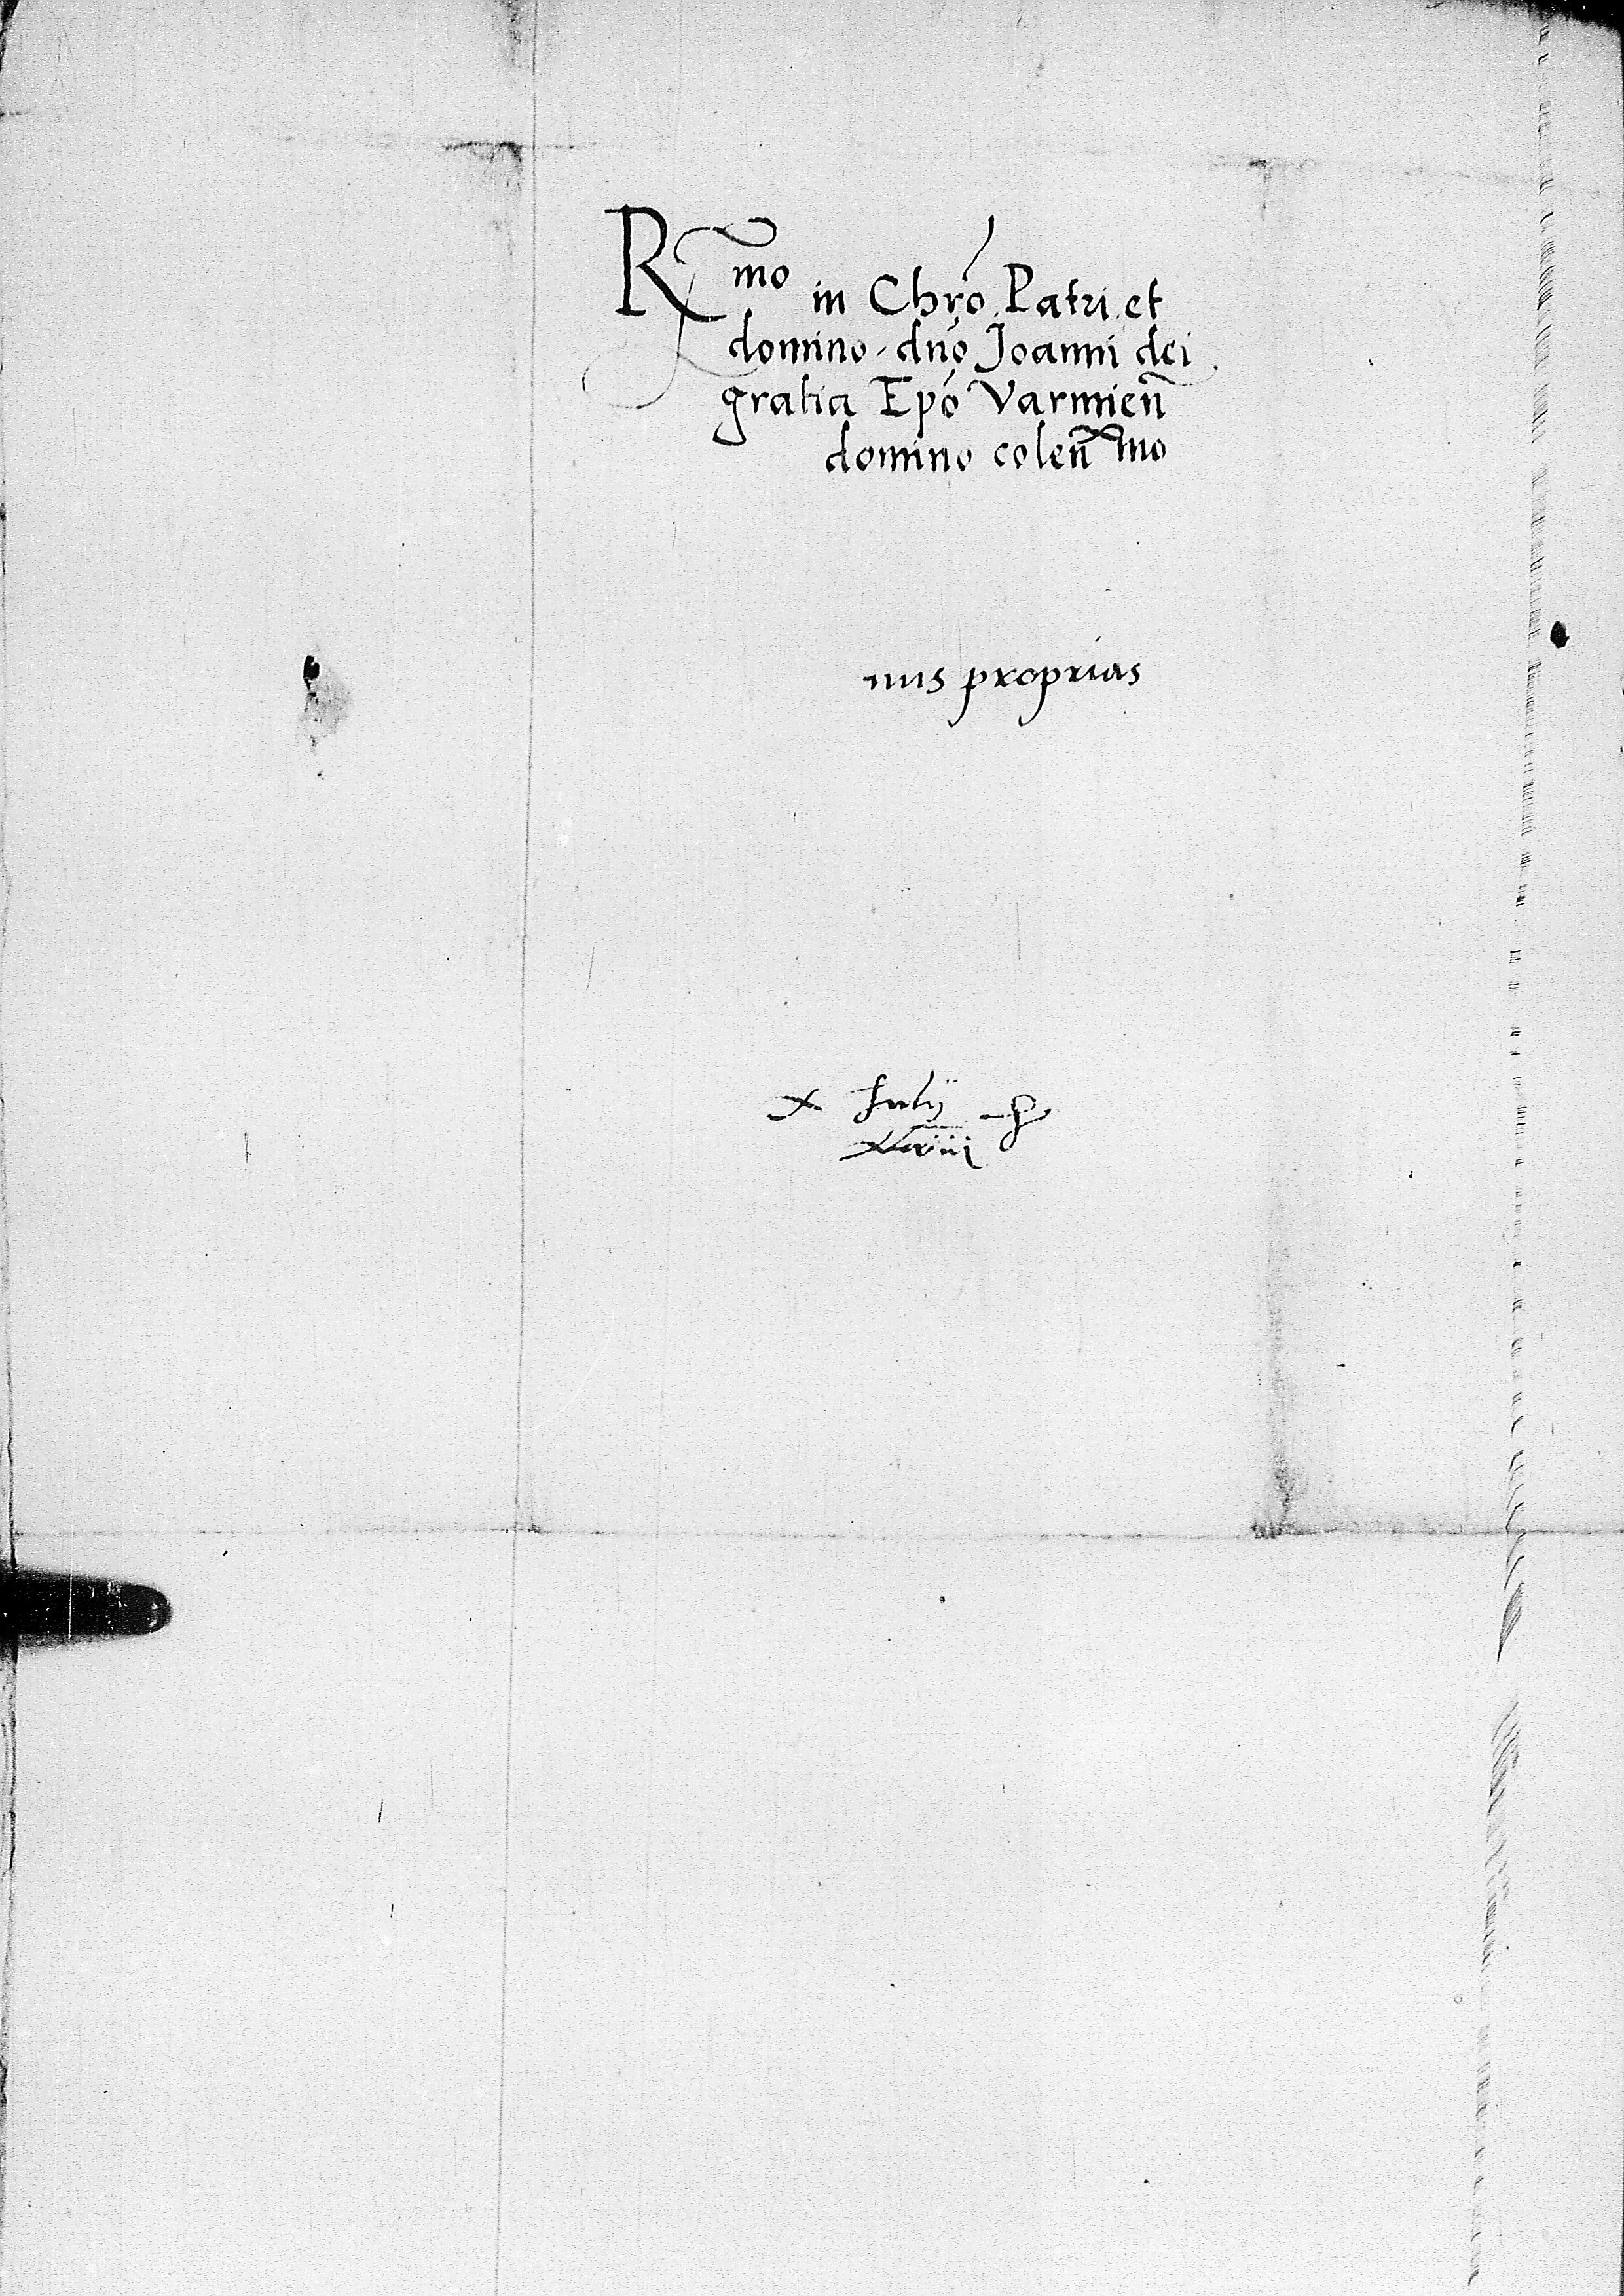 Rmo in Chro Patri et
domino dno Joanni dei
gratia Epo Varmien
domino colenmo
nus proprias
X Julij